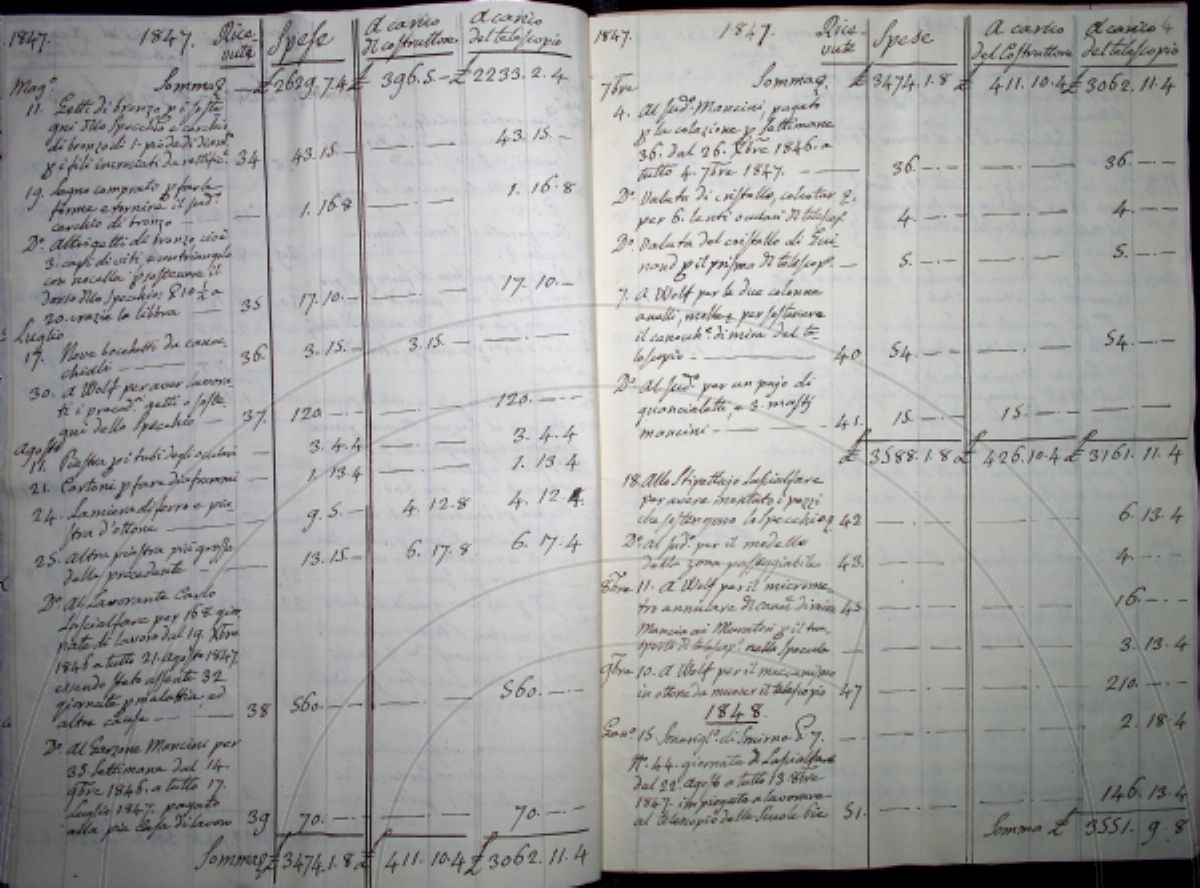 1847. 1847. Rice- Spese A carico A carico
vuta Di costruttore del telescopio
Mag.º Sommaq. — £ 2629. 7. 4 £ 396. 5 — £ 2233. 2. 4
11. Getti di bronzo p i soste-
gni dllo Specchio e cerchio
di bronzo di 1. piede di diam.º 43. 15. —
p i fili incrociati da rettific.e 34 43. 15. — — · —
19. Legno comprato p farle
forme e tornire il sud.º — 1. 16 8 — · — 1. 16. 8
cerchio di bronzo
Dº. Altri getti di bronzo, cioè
3. capi di viti, e un triangolo
con nocella p sostenere il
dorso dllo Specchio: 17. 10. —
20. crazie la libbra — 35 17. 10. — — · —
Luglio
17. Nove bocchetti da canoc- 36. 3. 15. — 3. 15. — — · —
chiali —
30. A Wolf per aver lavora-
ti i preced.i getti e soste-
gni dello Specchio — 37. 120 — · — — · — 120. — · —
Agosto
11. Piastra p i tubi degli oculari — 3. 4. 4 — · — 3. 4. 4
21. Cartoni p fare diaframmi — 1. 13 4 — · — 1. 13. 4
24. Lamiera di ferro e pia-
stra d'ottone — 9. 5. — 4. 12. 8 4. 12. 4
25. Altra piastra più grossa
della precedente — 13. 15. — 6. 17. 8 6. 17. 4
Dº. Al Lavorante Carlo
Lascialfare per 168 gior-
nate di lavoro dal 19. Xbre
1846 a tutto 21. Agosto 1847.
essendo stato assente 32
giornate p malattia, ed
altre cause — 38 560. — · — — · — 560. — · —
Dº. Al Garzone Mancini per
35. Settimane dal 14
9bre 1846. a tutto 17.
Luglio 1847. pagato
alla pia Casa di lavoro 39 70. — · — — · — 70. — · —
Sommaq £ 3474. 1. 8 £ 411. 10. 4 £ 3062. 11. 4
1847. 1847. Rice- Spese A carico A carico 4
vuta del Costruttore del telescopio
7bre Sommaq. £ 3474. 1. 8 £ 411. 10. 4 £ 3062. 11. 4
4. Al sud.º Mancini, pagato
p la colazione p Settimane
36. dal 26. Xbre 1846. a
tutto 4. 7bre 1847. — 36. — · — — · — 36. — · —
Dº. Valuta di cristallo,
per 6. lenti oculari di telesco.º 4. — · — — · — 4. — · —
Dº. Valuta del cristallo di Gui-
nand p il prisma di telescop.º — 5. — · — — · — 5. — · —
7. A Wolf per le due colonne
anelli, molle per sostenere
il canocch.e di mira del te-
lescopio — 40 54. — · — — · — 54. — · —
Dº. Al sud.º per un pajo di
guancialetti, e 3. mastj
mancini — 41. 15. — · — 15. — · — — · —
£ 3588. 1. 8 £ 426. 10. 4 £ 3161. 11. 4
18. Allo Stipettajo Lascialfare
per avere montato i pezzi
che sostengono lo Specchio 42 — · — — · — 6. 13. 4
Dº. Al sud.º per il modello
della zona passeggiabile 43. — · — — · — 4. — · —
8bre 11. A Wolf per il microme-
tro annulare di can.e di mira 45 — · — — · — 16. — · —
Mancia ai Muratori p il tra-
sporto di telescop.º nella Specola — — · — — · — 3. 13. 4
9bre 10. A Wolf per il meccanismo
in ottone da muover il telescopio 47 — · — — · — 210. — · —
1848.
Gen.º 15. Smerigl.º di Smirne — · — — · — 2. 18. 4
Nº. 44. giornate di Lascialfare
dal 22. Agosto a tutto 13. 8bre
1847. impiegate a lavorare
al telescopio delle Scuole Pie 51. — · — — · — 146. 13. 4
Somma £ 3551. 9. 8